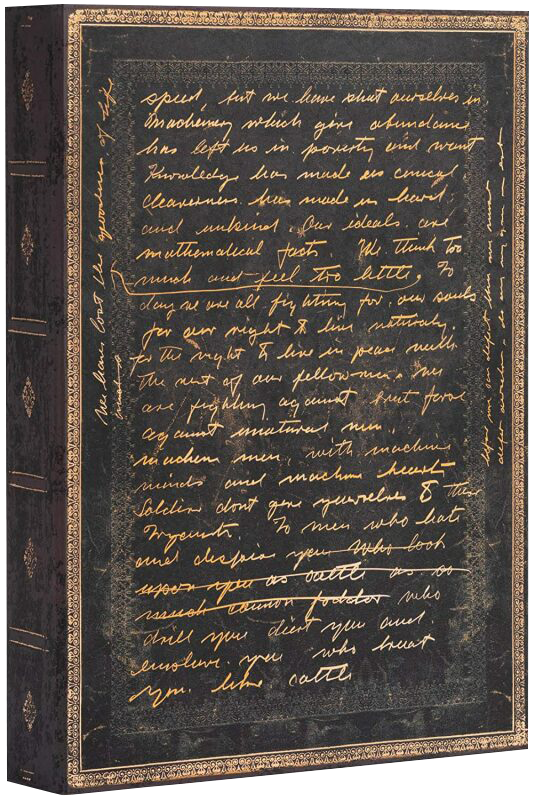 speed, but we have shut ourselves in
Machinery which give abundance
has left us in poverty and want
Knowledge has made us cynical
cleverness has made us hard
and unkind. Our ideals are
mathematical facts. We think too
much and feel too little. To
day we are all fighting for our souls
for our right to live naturally.
for the right to live in peace with
the rest of our fellowmen. We
are fighting against brut force
against unatural men.
machine men, with machine
minds and machine hearts
Soldiers dont give yourselves to these
To men who hate
and despise you who look
upon you as cattle as so
much cannon fodder who
drill you diet you and
enslave you who treat
you like cattle
We have lost the of life